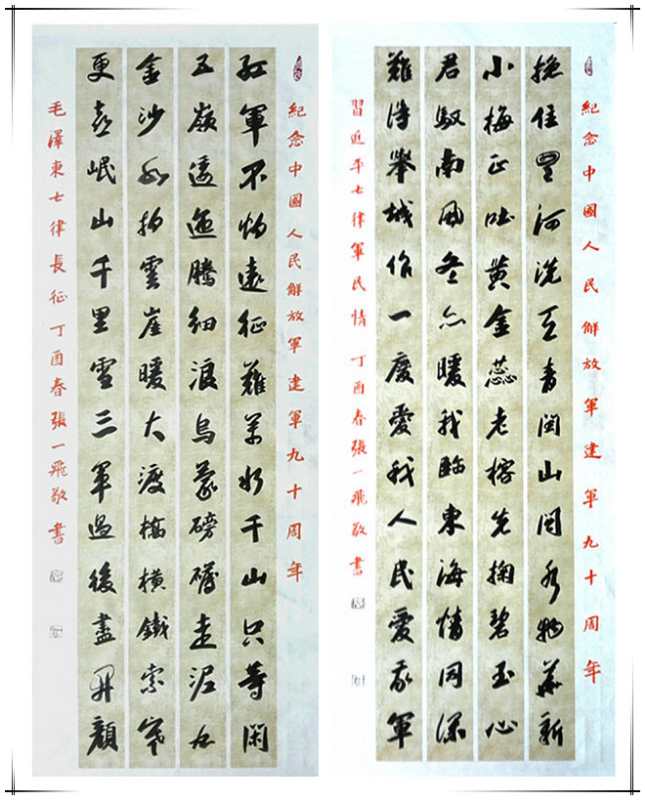 紀念中國人民解放軍建軍九十周年
紅軍不怕遠征難萬水千山只等閑
五嶺逶迤騰細浪烏蒙磅礴走泥丸
金沙水拍雲崖暖大渡橋橫鐵索寒
更喜岷山千里雪三軍過後盡開顏
毛澤東七律長征丁酉春張一飛敬書
紀念中國人民解放軍建軍九十周年
挽住雲河洗天青閩山閩水物華新
小梅正吐黃金蕊老榕先掬碧玉心
君馭南風冬亦暖我臨東海情同深
難得舉城作一慶愛我人民愛我軍
習近平七律軍民情丁酉春張一飛敬書